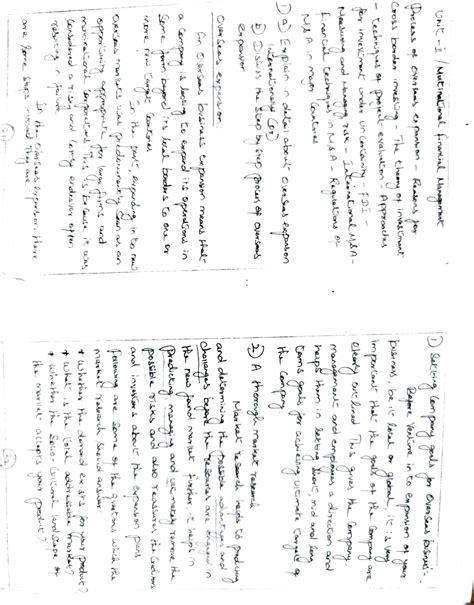 Unit-2 / Multinational financial Management
Process of overseas expansion - Reasons for
cross border investing - The theory of investment
- techniques of project evaluation Approaches
for investment under uncertainty - FDI -
Measuring and Managing risk - International M&A -
financial techniques in M&A - Regulations of
M&A in major Countries
1) a) Explain in detail about overseas expansion
Internationally (or)
b) Discuss the step by step process of overseas
expansion
Overseas expansion
An overseas business expansion means that
a company is looking to expand its operations in
some form beyond its local borders to one or
more new target countries
In the past expanding in to new
overseas markets was predominantly seen as an
opportunity appropriate for large firms and
multinational corporations This is because it was
considered a risky and costly endeavor often
resulting in failure
In the overseas expansion there
are some steps involved They are
1) Setting Company goals for overseas business:
Before Venture in to expansion of your
business, be it local or global, it is very
important that the goals of the company are
clearly outlined This gives the company
management and employees a direction and
helps them in setting short, mid and long
terms goals for achieving ultimate target of
the Company
2) A thorough market research
Market research helps to producing
and determining the possible adoption and
challenges before the resources are engaged in
the new found market further it helps in
Predicting managing and ultimately remove the
possible risks and also reassures the creditors
and investors about the expansion plans
following are some of the questions which the
market research should answer
* Whether the demand exists for your product?
* What is the total addressable market?
* Whether the socio-cultural landscape of
the market accepts your product?